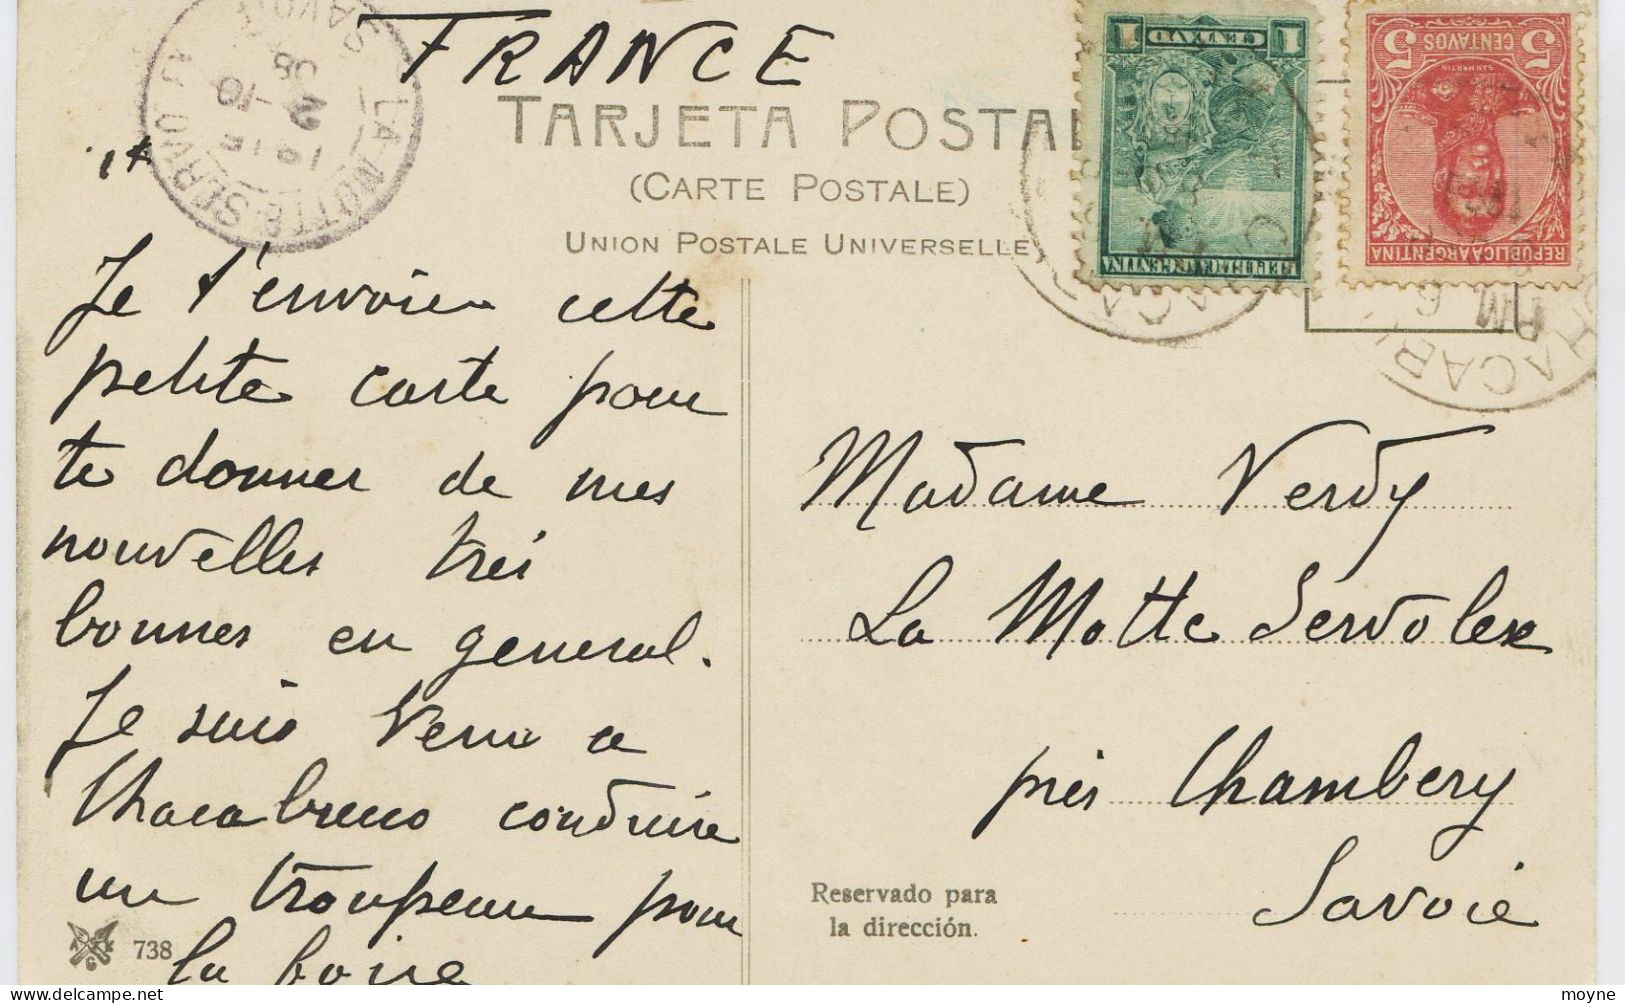 FRANCE
TARJETA POSTAL
(CARTE POSTALE)
UNION POSTALE UNIVERSELLE
LA MOTTE-SERVOLEX
SAVOIE
16-10
2
08
1 CENTAVO 1
REPUBLICA ARGENTINA
5 CENTAVOS 5
SAN MARTIN
REPUBLICA ARGENTINA
CHACABU
PM
Je t'envoie cette
petite carte pour
te donner de mes
nouvelles très
bonnes en general.
Je suis venu a
Chacabuco conduire
un troupeau pour
la foire
Madame Verdy
La Motte Servolex
près Chambery
Savoie
Reservado para
la dirección.
738
moyne